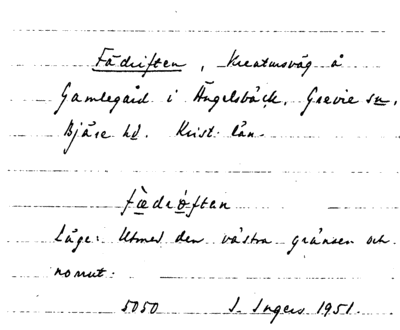 Fädriften, Kreatursväg å
Gamlegård i Ängelsbäck, Grevie sn.
Bjäre hd. Krist. län.
fæ̀drøftan
Läge: Utmed den västra gränsen och
norrut.
5050 I. Ingers 1951.